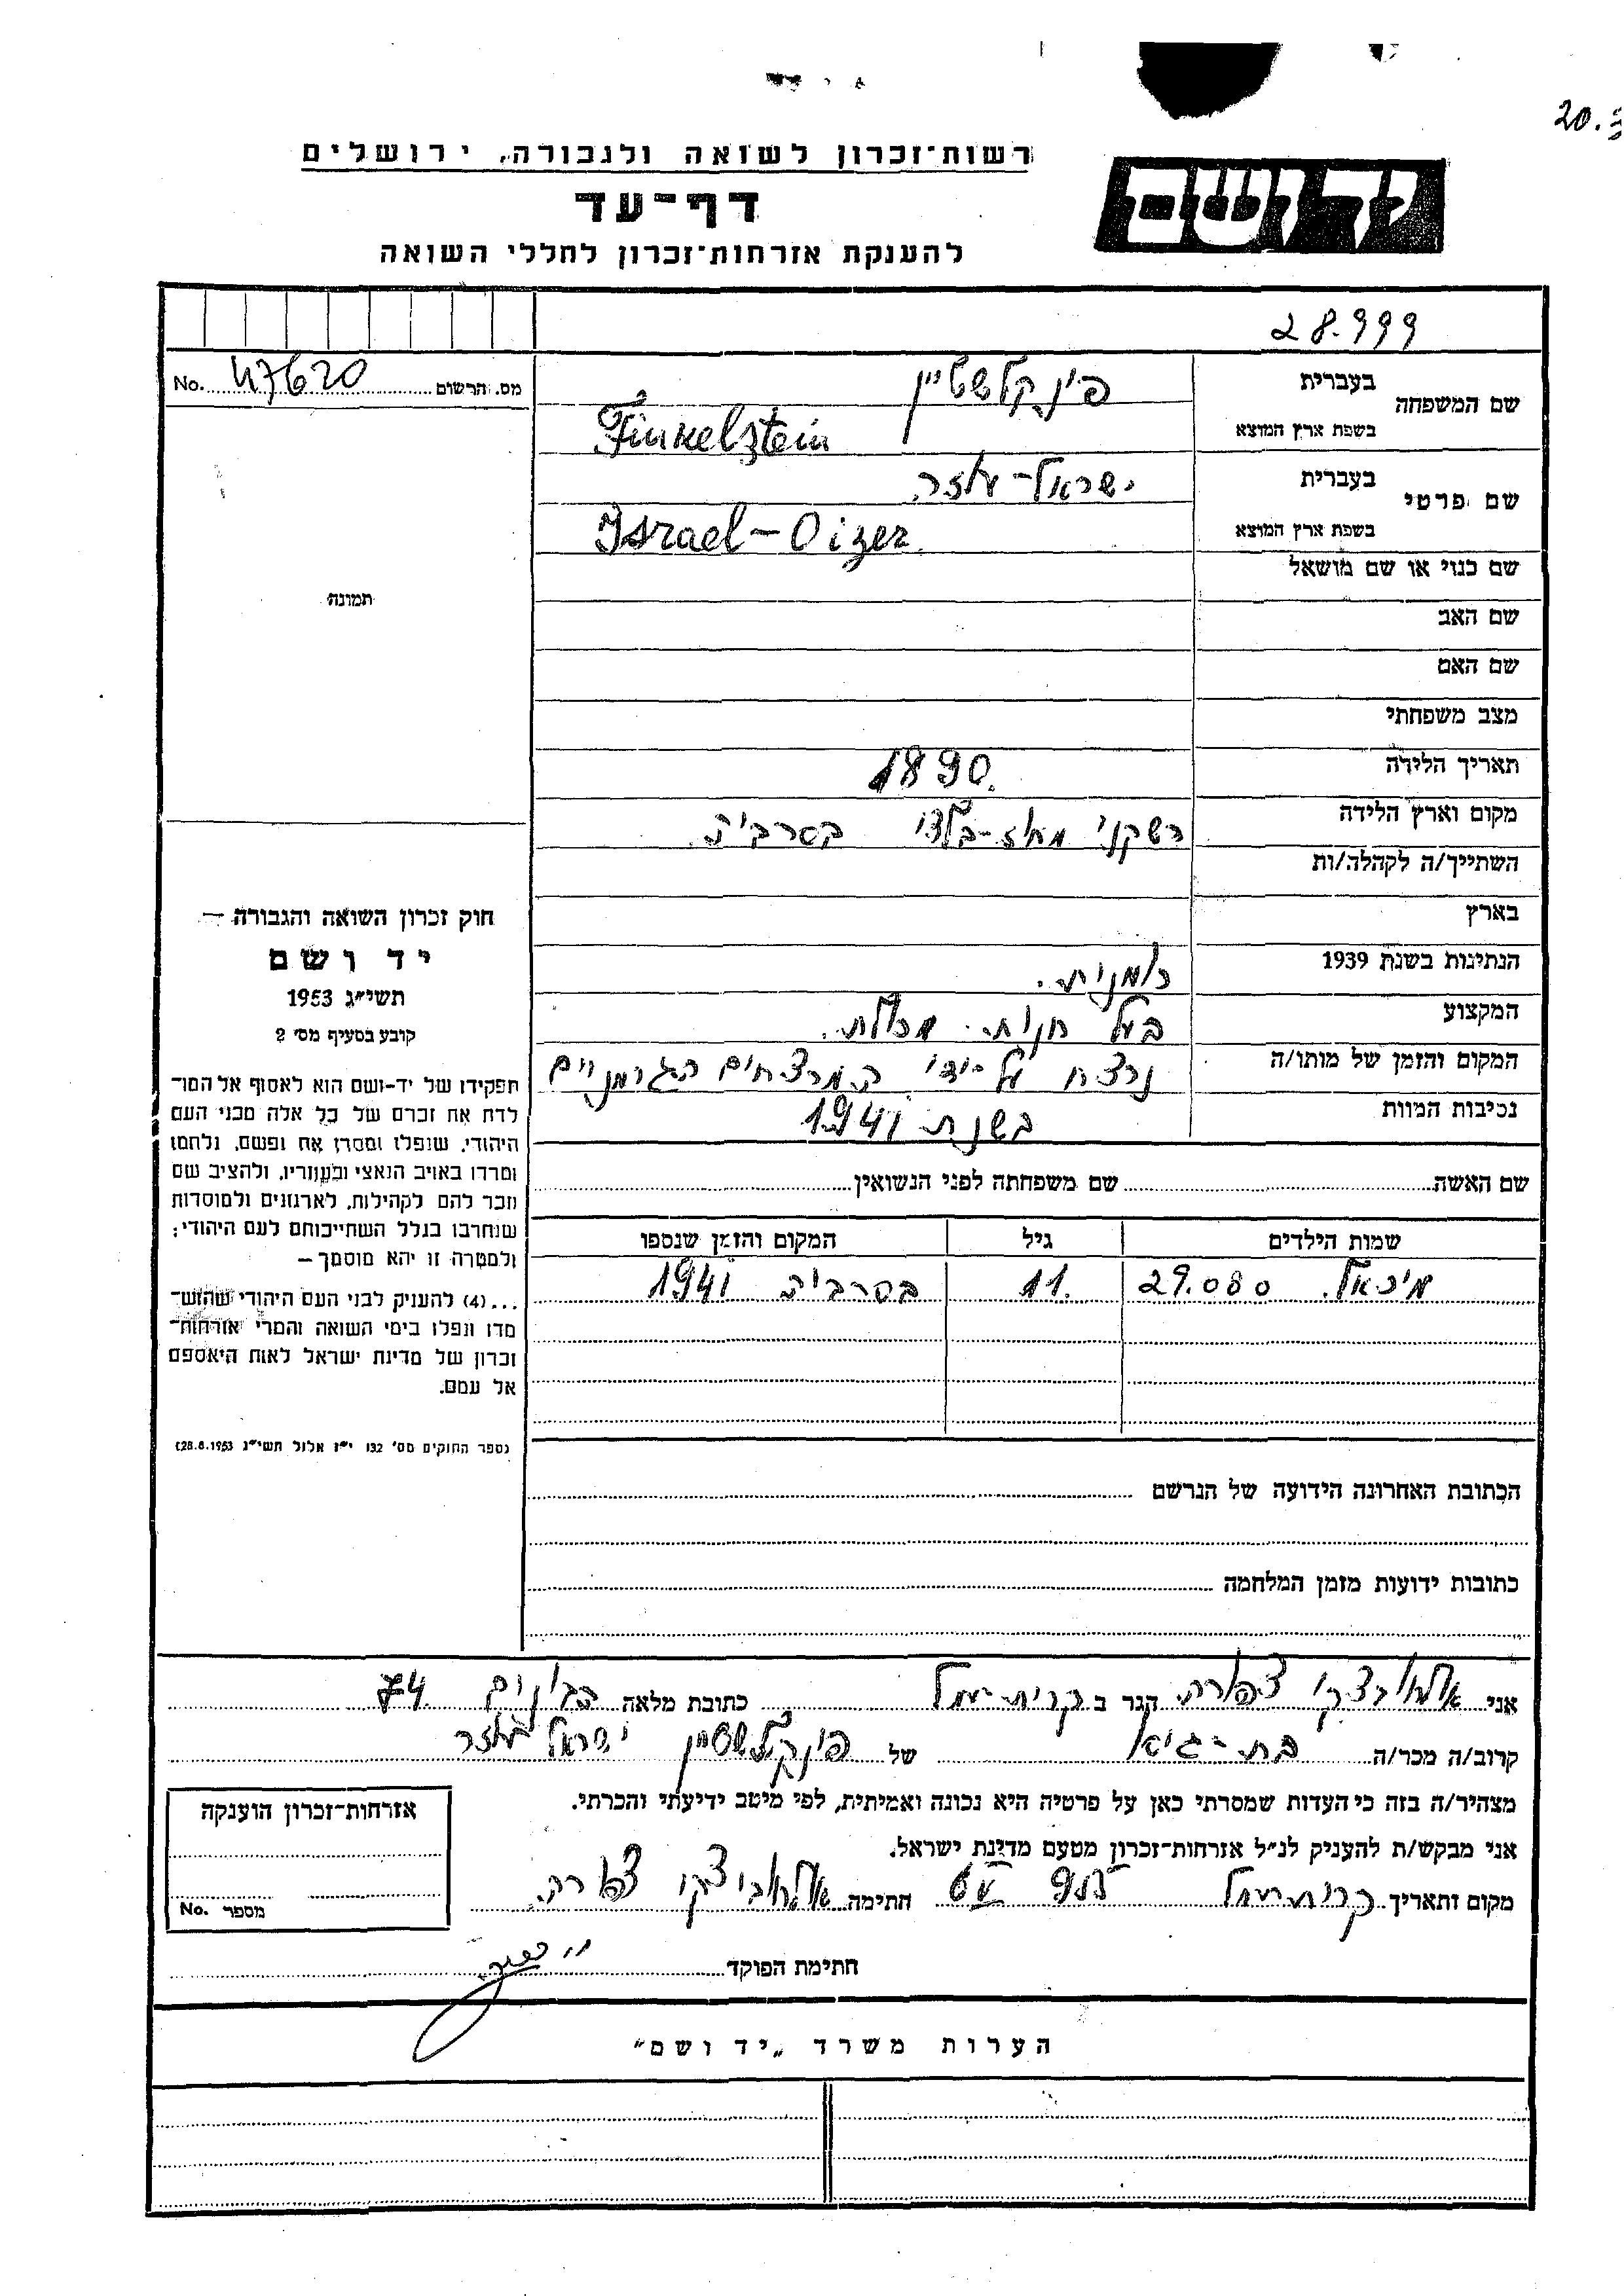 20.
רשות־זכרון לשואה ולגבורה, ירושלים
יד ושם
דף־עד
להענקת אזרחות־זכרון לחללי השואה
28.999
מס. הרשום 47620 No.
שם המשפחה
בעברית
פינקלשטיין
בשפת ארץ המוצא
Finkelsztein
שם פרטי
בעברית
ישראל-עוזר
בשפת ארץ המוצא
Israel-Oizer
שם כנוי או שם מושאל
תמונה
שם האב
שם האם
מצב משפחתי
תאריך הלידה 1890
מקום וארץ הלידה רשקני מחוז-בלצי בסרביה
השתייך/ה לקהלה/ות
בארץ
הנתינות בשנת 1939 רומנית.
המקצוע בעל חנות. מכולת.
המקום והזמן של מותו/ה נרצח על-ידי המרצחים הגרמניים
נסיבות המוות בשנת 1941
חוק זכרון השואה והגבורה —
יד ושם
תשי״ג 1953
קובע בסעיף מס׳ 2
תפקידו של יד-ושם הוא לאסוף אל המו־
לדת את זכרם של כל אלה מבני העם
היהודי, שנפלו ומסרו את נפשם, נלחמו
ומרדו באויב הנאצי ובעוזריו, ולהציב שם
וזכר להם לקהילות, לארגונים ולמוסדות
שנחרבו בגלל השתייכותם לעם היהודי;
ולמטרה זו יהא מוסמך —
...(4) להעניק לבני העם היהודי שהוש־
מדו ונפלו בימי השואה והמרי אזרחות־
זכרון של מדינת ישראל לאות היאספם
אל עמם.
(ספר החוקים מס׳ 132 י״ז אלול תשי״ג 28.8.1953)
שם האשה שם משפחתה לפני הנשואין
שמות הילדים גיל המקום והזמן שנספו
מיכאל 29.080 11. בסרביה 1941
הכתובת האחרונה הידועה של הנרשם
כתובות ידועות מזמן המלחמה
אני צפורה הגר ב קרית-יובל כתובת מלאה 74
קרוב/ה מכר/ה בת-גיסו של פינקלשטיין ישראל עוזר
מצהיר/ה בזה כי העדות שמסרתי כאן על פרטיה היא נכונה ואמיתית, לפי מיטב ידיעתי והכרתי.
אני מבקש/ת להעניק לנ״ל אזרחות־זכרון מטעם מדינת ישראל.
מקום ותאריך חתימה צפורה
אזרחות־זכרון הוענקה
מספר No.
חתימת הפוקד
הערות משרד „יד ושם״